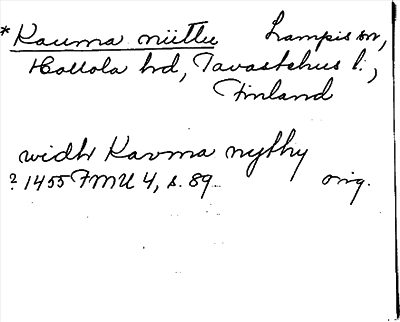 *Kauma niittu Lampis sn,
Hollola hd, Tavastehus l.,
Finland
widh Kavma nythy
? 1455 FMU 4, s. 89 orig.